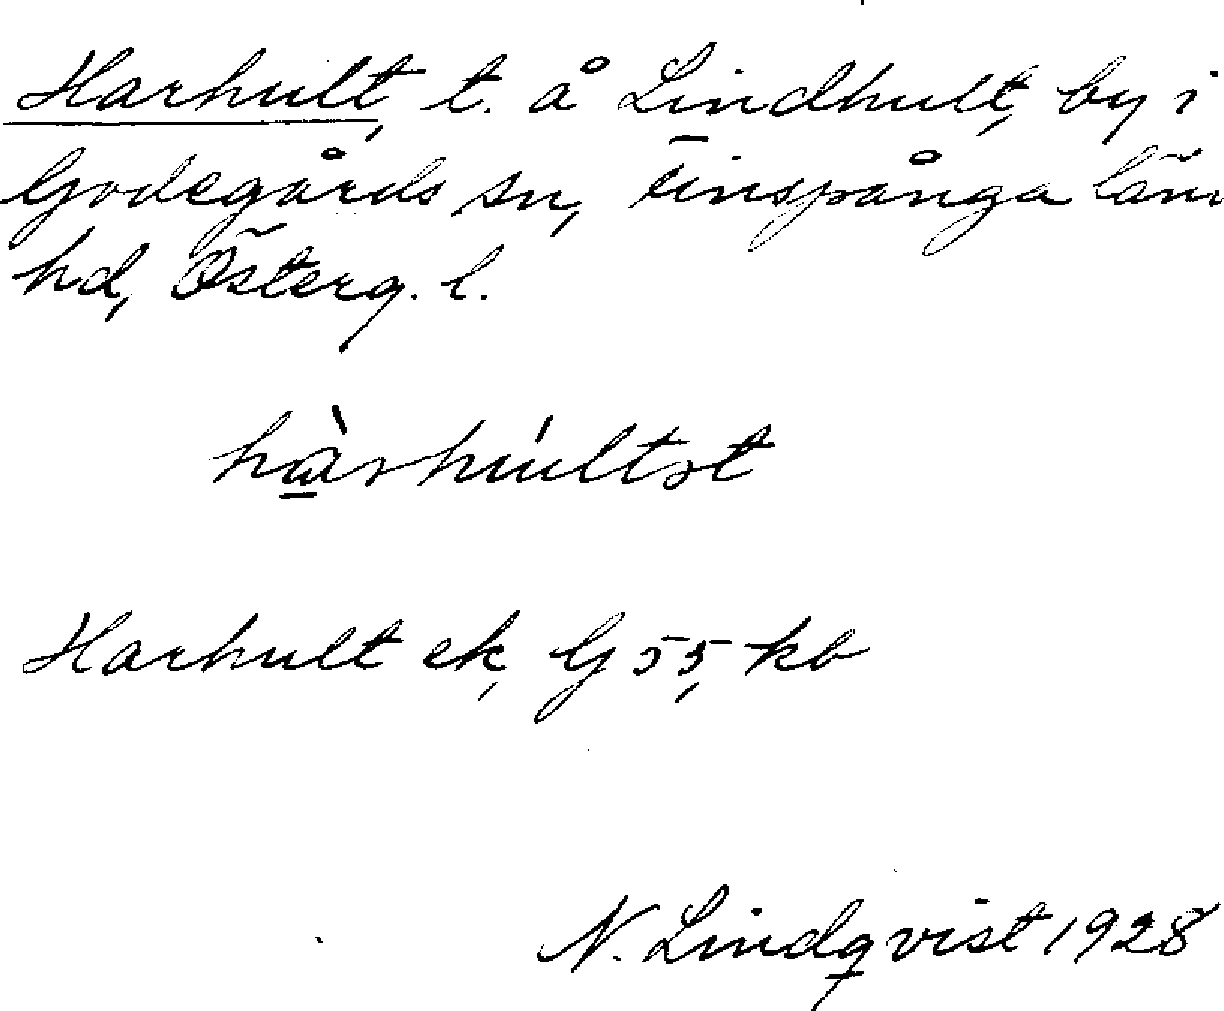 Harhult, t. å Lindhult, by i
Godegårds sn, Finspånga läns
hd, Österg. l.
hàrhúltət
Harhult ek, G 55, kb
N. Lindqvist 1928